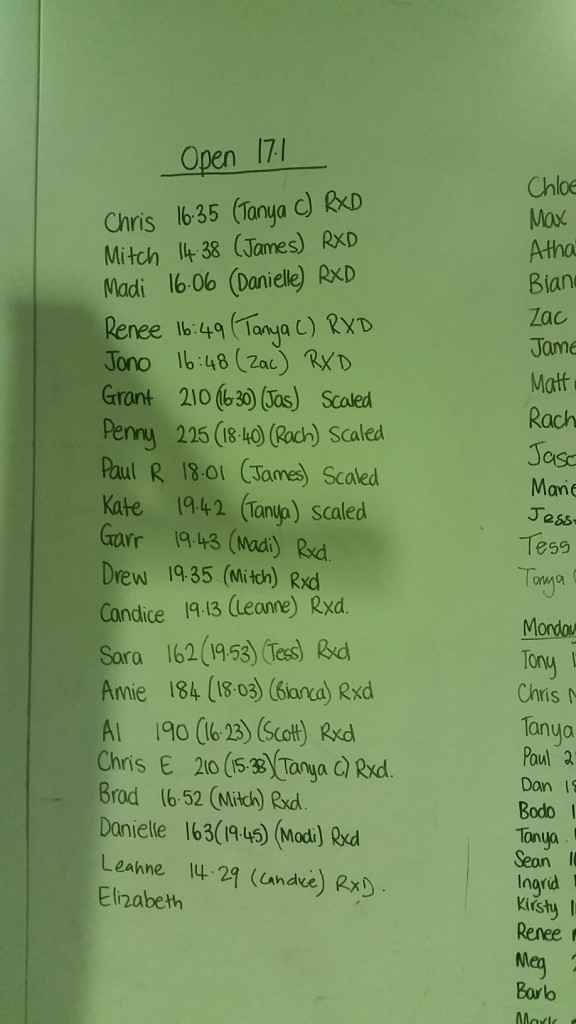 Open 17.1
Chris 16.35 (Tanya C) RxD
Mitch 14.38 (James) RxD
Madi 16.06 (Danielle) RxD
Renee 16:49 (Tanya C) RXD
Jono 16:48 (Zac) RXD
Grant 210 (16.30) (Jas) Scaled
Penny 225 (18.40) (Rach) Scaled
Paul R 18.01 (James) Scaled
Kate 19.42 (Tanya) scaled
Garr 19.43 (Madi) Rxd.
Drew 19.35 (Mitch) Rxd
Candice 19.13 (Leanne) Rxd.
Sara 162 (19.53) (Tess) Rxd
Amie 184 (18.03) (Bianca) Rxd
Al 190 (16.23) (Scott) Rxd
Chris E 210 (15.38) (Tanya C) Rxd.
Brad 16.52 (Mitch) Rxd.
Danielle 163 (19.45) (Madi) Rxd
Leanne 14.29 (Candice) RxD.
Elizabeth
Chloe
Max
Atha
Bian
Zac
Jame
Matt
Rach
Jaso
Marie
Jess
Tess
Tanya
Monday
Tony
Chris
Tanya
Paul 2
Dan 18
Bodo 1
Tanya
Sean
Ingrid
Kirsty
Renee
Meg
Barb
Mark